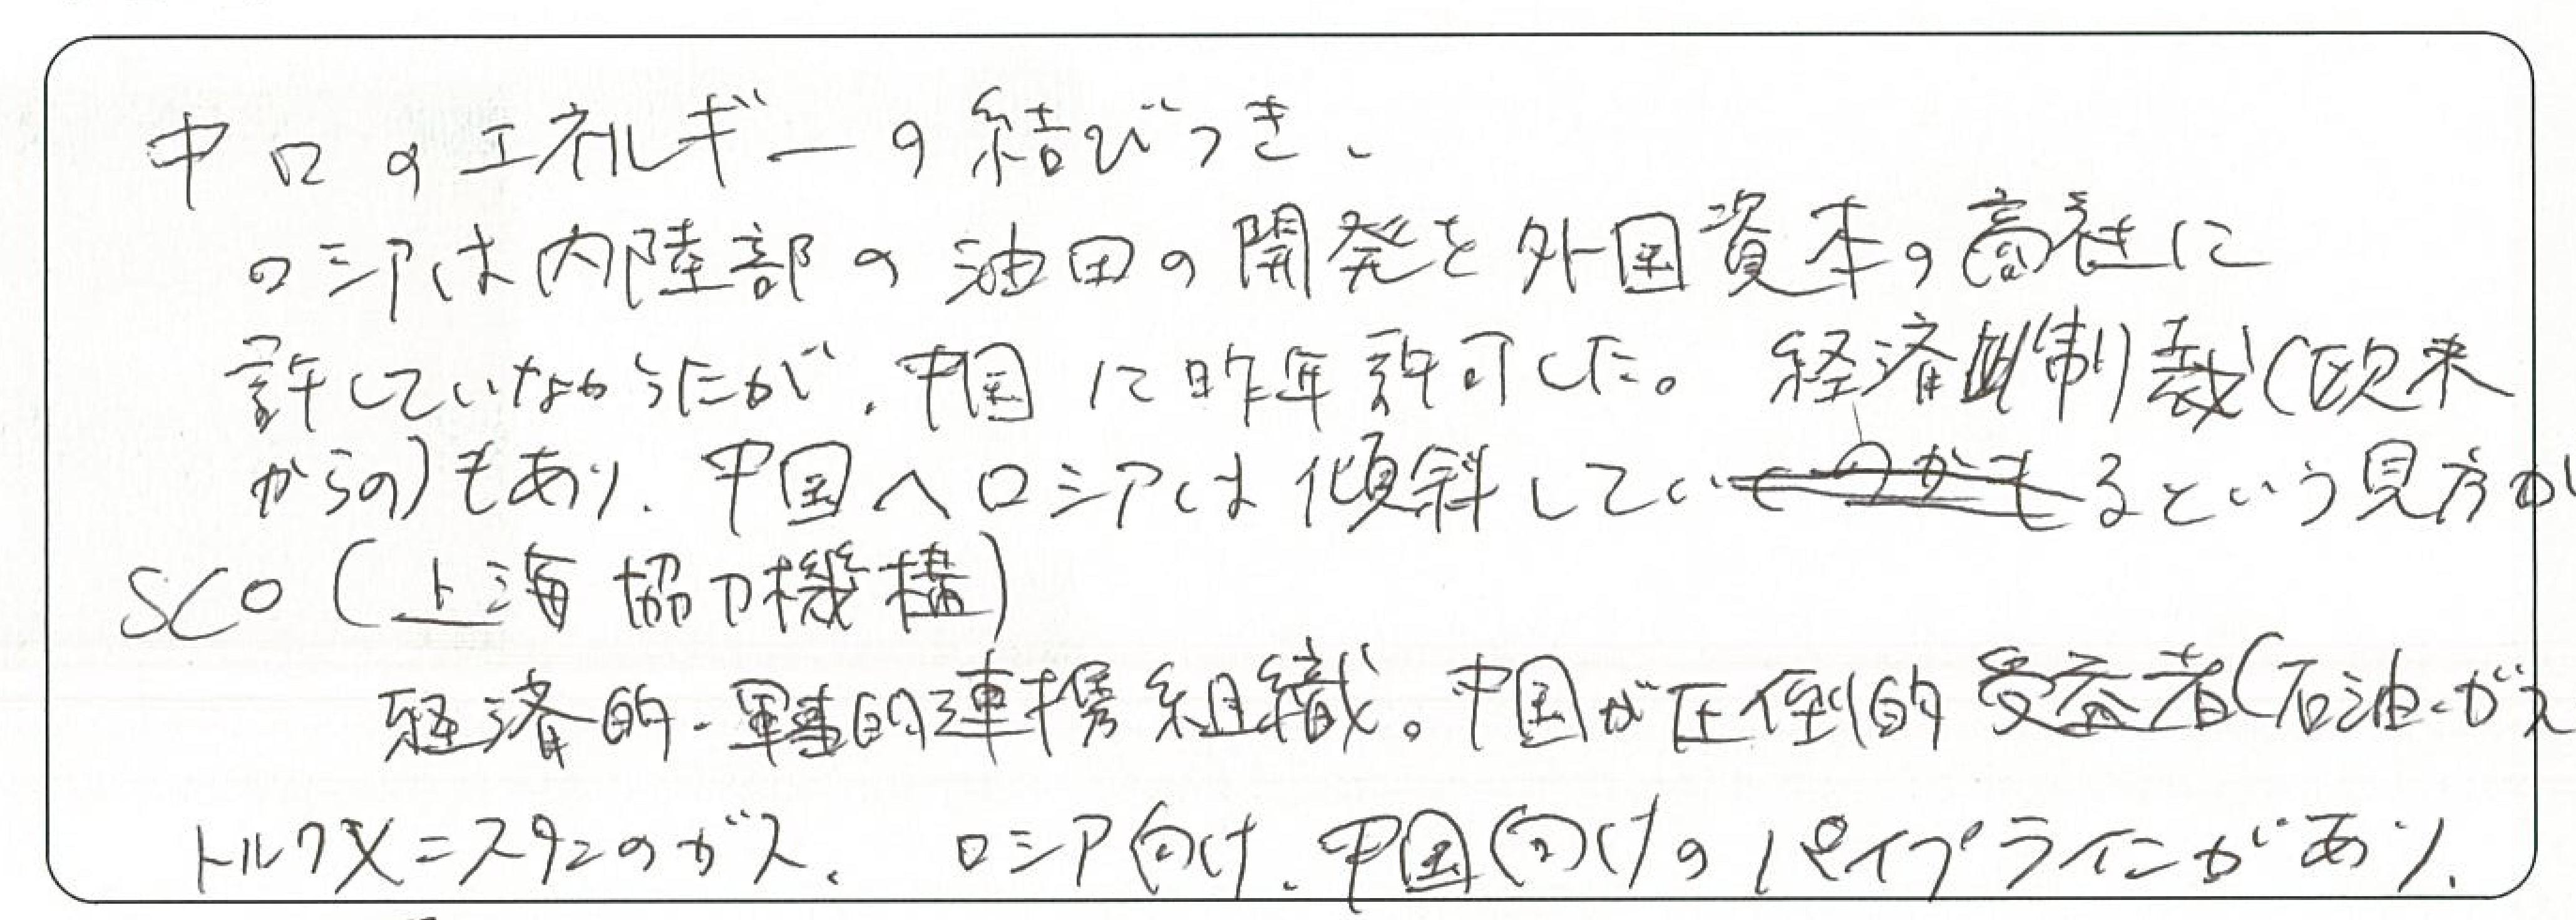 中ロのエネルギーの結びつき、
ロシアは内陸部の油田の開発を外国資本の高率に
許していなかったが、中国に昨年許可した。経済制裁(欧米
からの)もあり、中国へロシアは傾斜しているという見方が
SCO(上海協力機構)
経済的・軍事的連携組織。中国が圧倒的受益者(石油・ガス
トルクメニスタンのガス、ロシア向け、中国向けのパイプラインがあり、